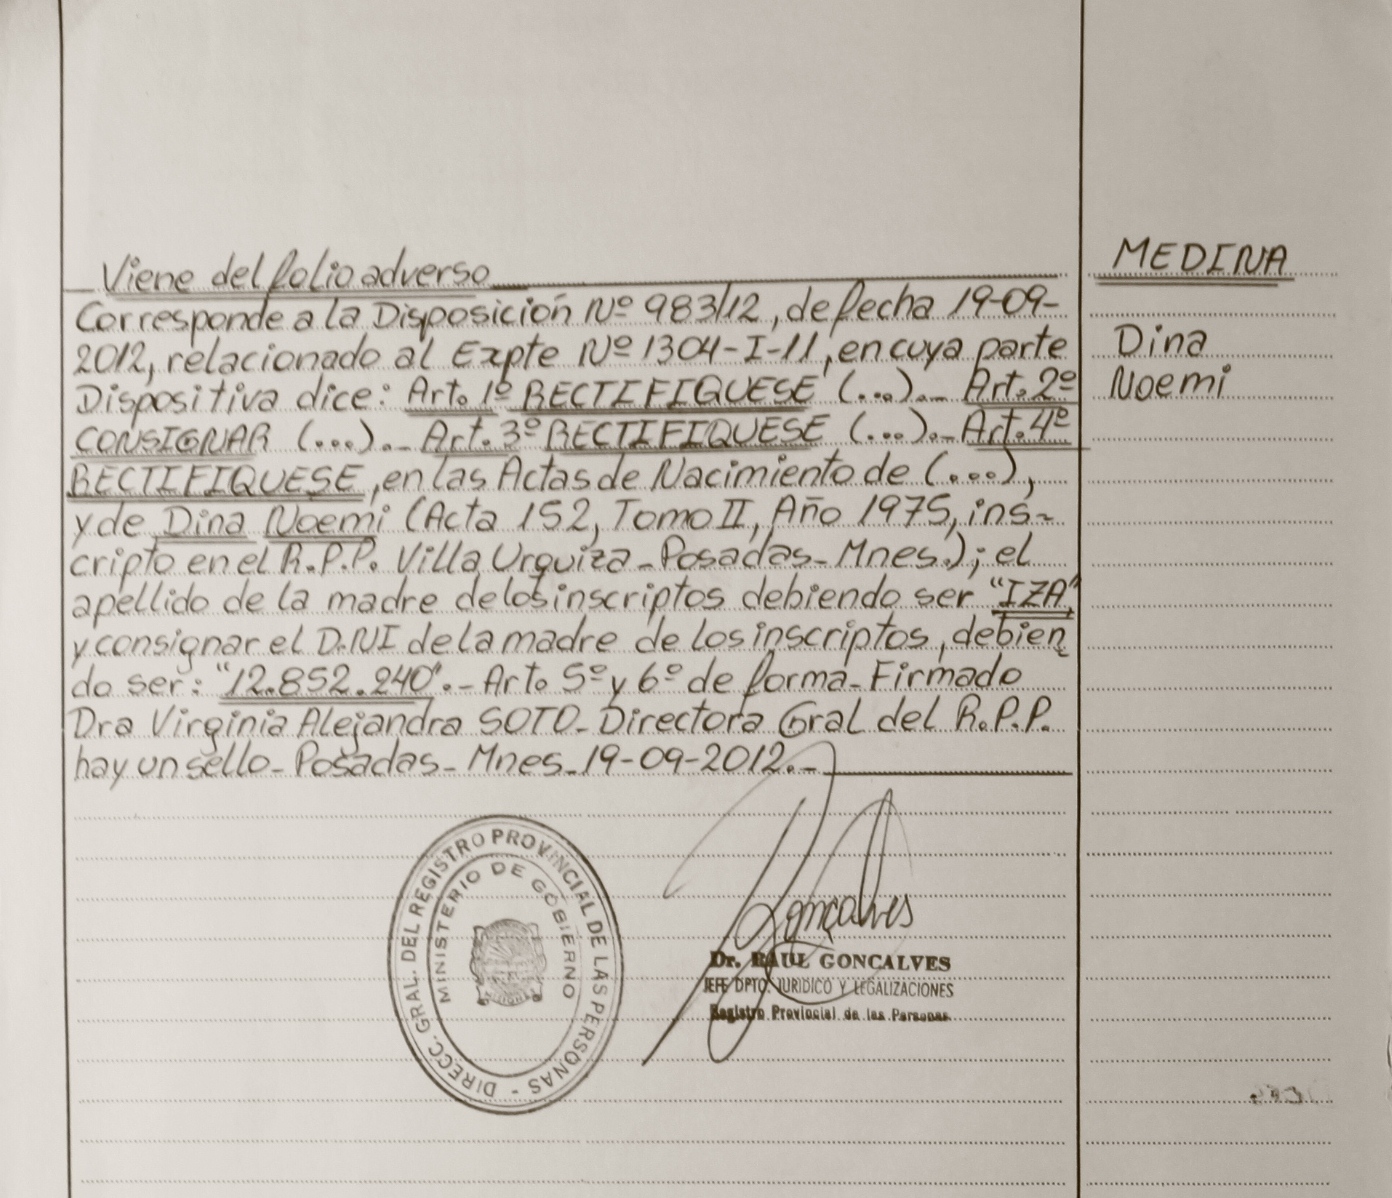 Viene del folio adverso
Corresponde a la Disposición Nº 983/12, de fecha 19-09-
2012, relacionado al Expte Nº 1304-I-11, en cuya parte
Dispositiva dice: Art. 1º RECTIFIQUESE (...).- Art. 2º
CONSIGNAR (...).- Art. 3º RECTIFIQUESE (...).- Art. 4º
RECTIFIQUESE, en las Actas de Nacimiento de (...),
y de Dina Noemi (Acta 152, Tomo II, Año 1975, ins-
cripto en el R.P.P. Villa Urquiza - Posadas - Mnes.); el
apellido de la madre de los inscriptos debiendo ser "IZA"
y consignar el D.NI de la madre de los inscriptos, debien
do ser: "12.852.240".- Art. 5º y 6º de forma - Firmado
Dra Virginia Alejandra SOTO - Directora Gral del R.P.P.
hay un sello - Posadas - Mnes - 19-09-2012.-
MEDINA
Dina
Noemi
DIRECC. GRAL. DEL REGISTRO PROVINCIAL DE LAS PERSONAS -
MINISTERIO DE GOBIERNO
Gonçalves
Dr. RAUL GONCALVES
JEFE DPTO. JURIDICO Y LEGALIZACIONES
Registro Provincial de las Personas